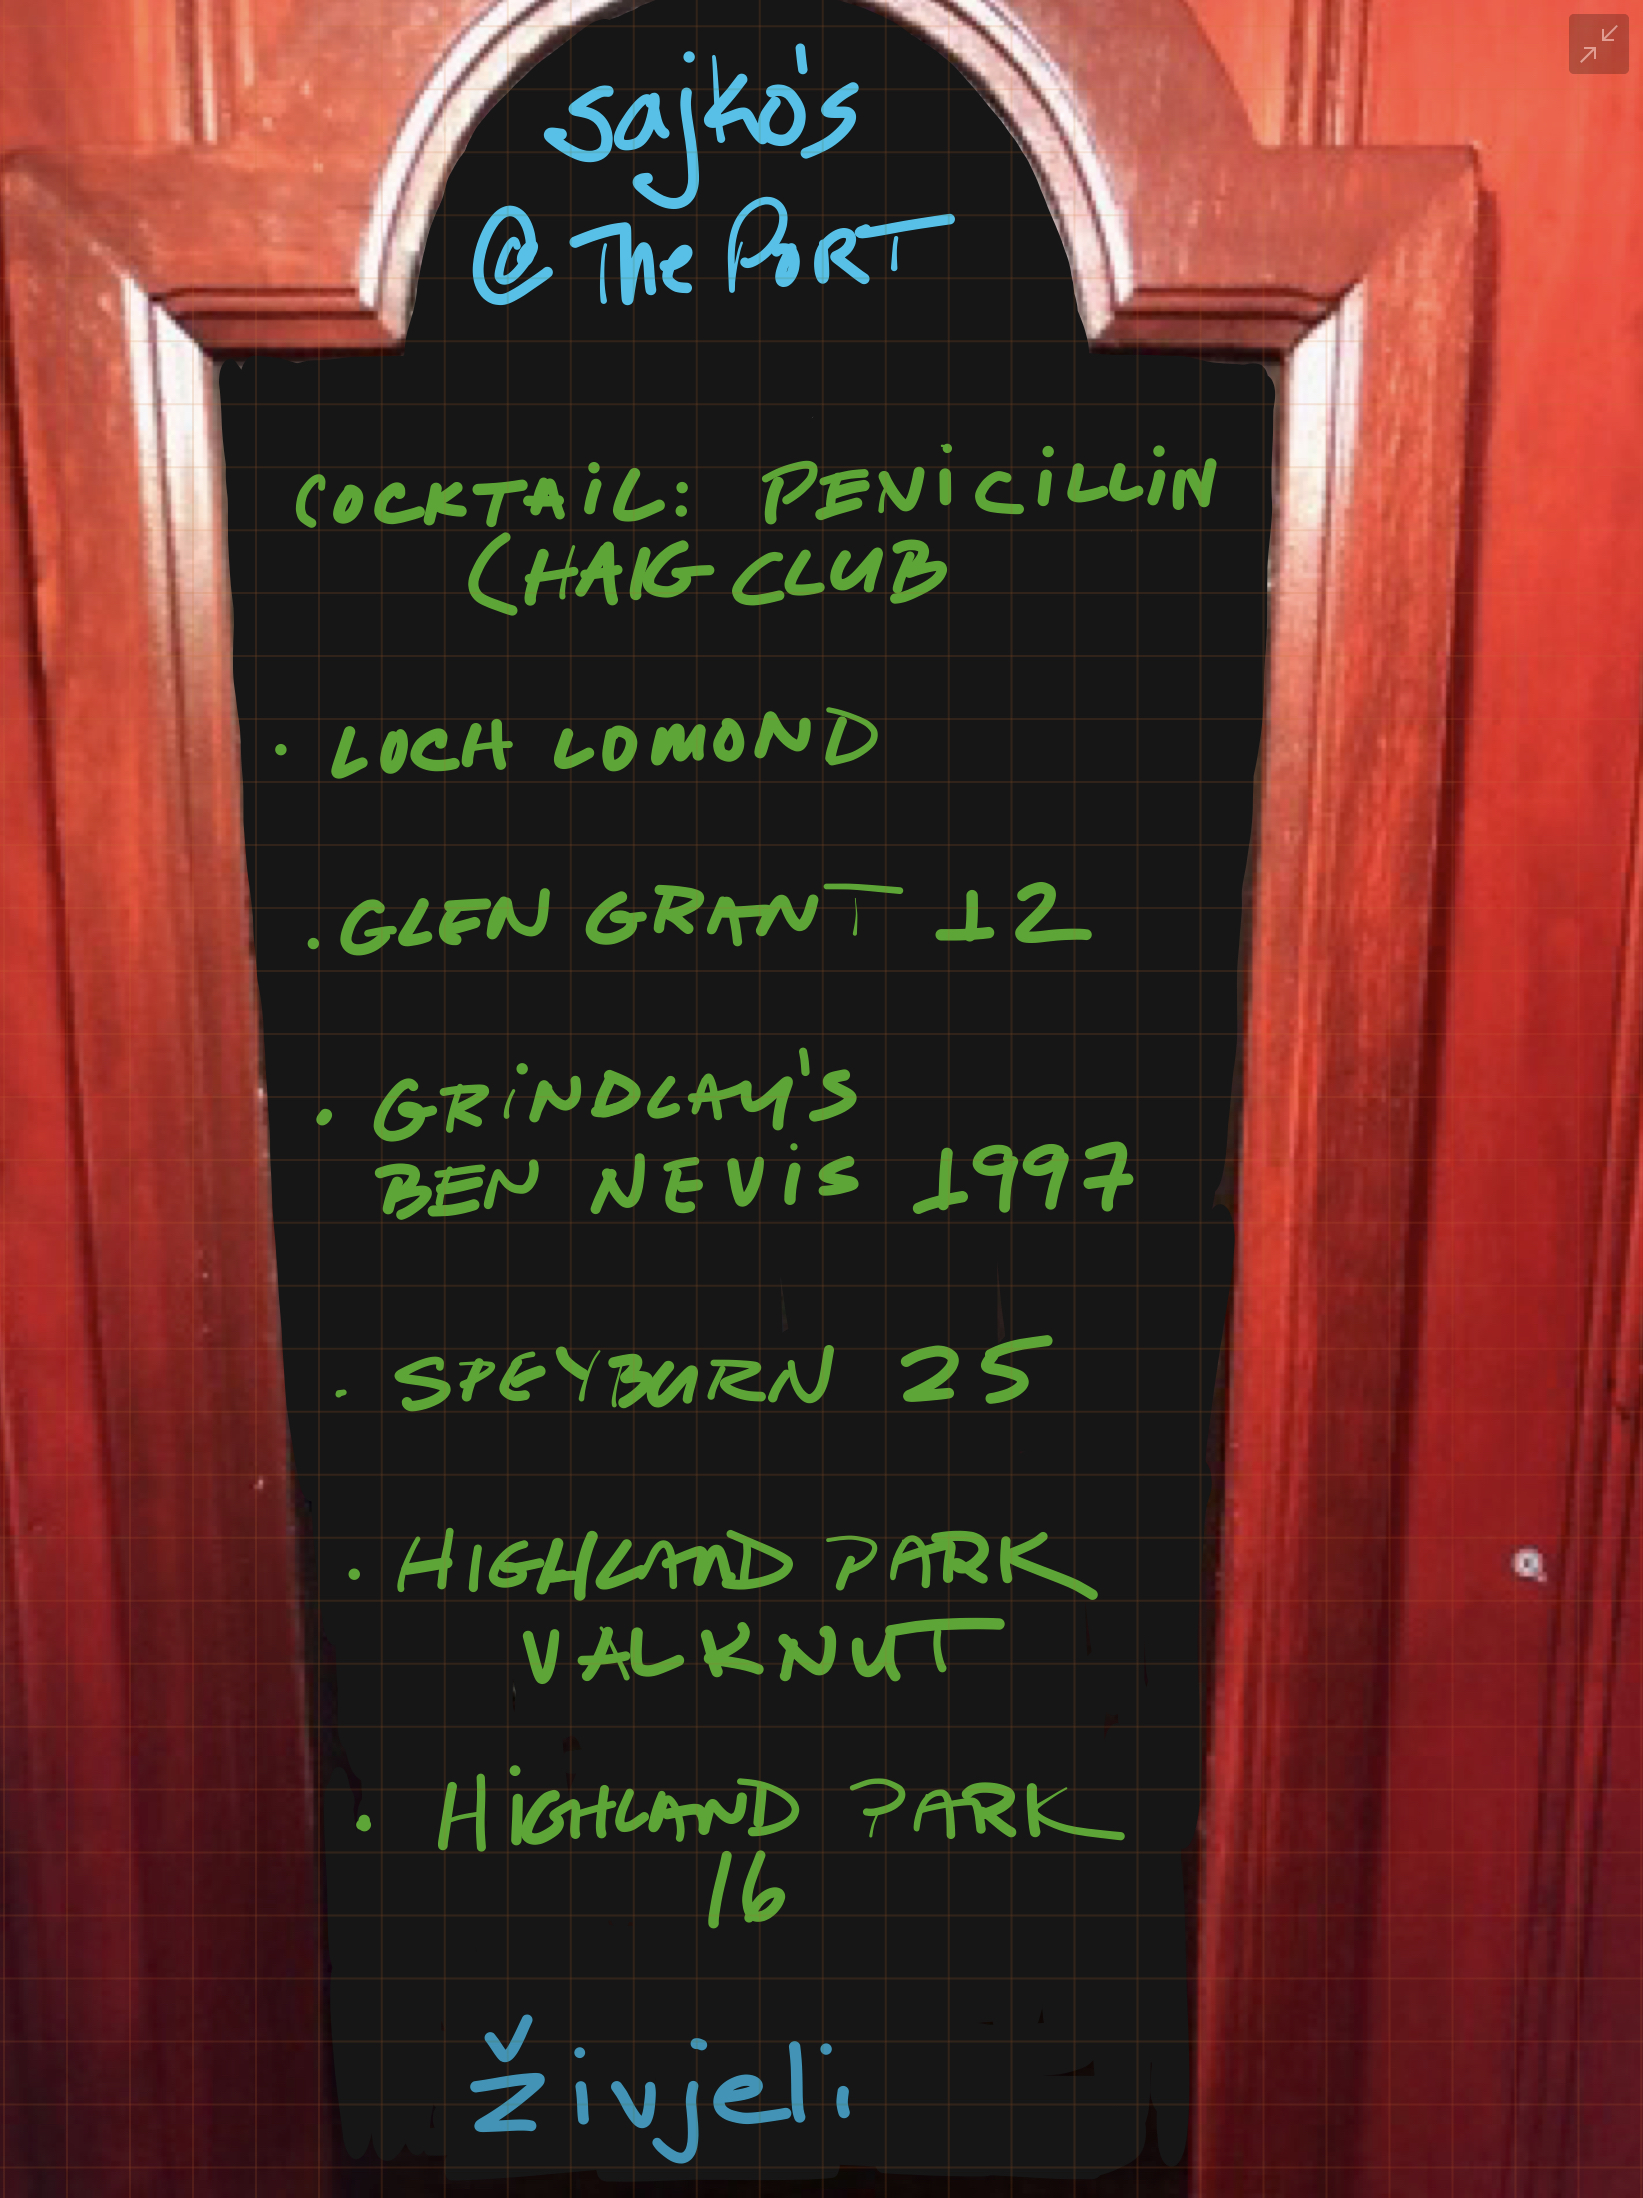 Sajko's
@ The PORT
COCKTAIL: PENICILLIN
(HAIG CLUB
• LOCH LOMOND
• GLEN GRANT 12
• GRINDLAY'S
BEN NEVIS 1997
• SPEYBURN 25
• HIGHLAND PARK
VALKNUT
• HIGHLAND PARK
16
živjeli